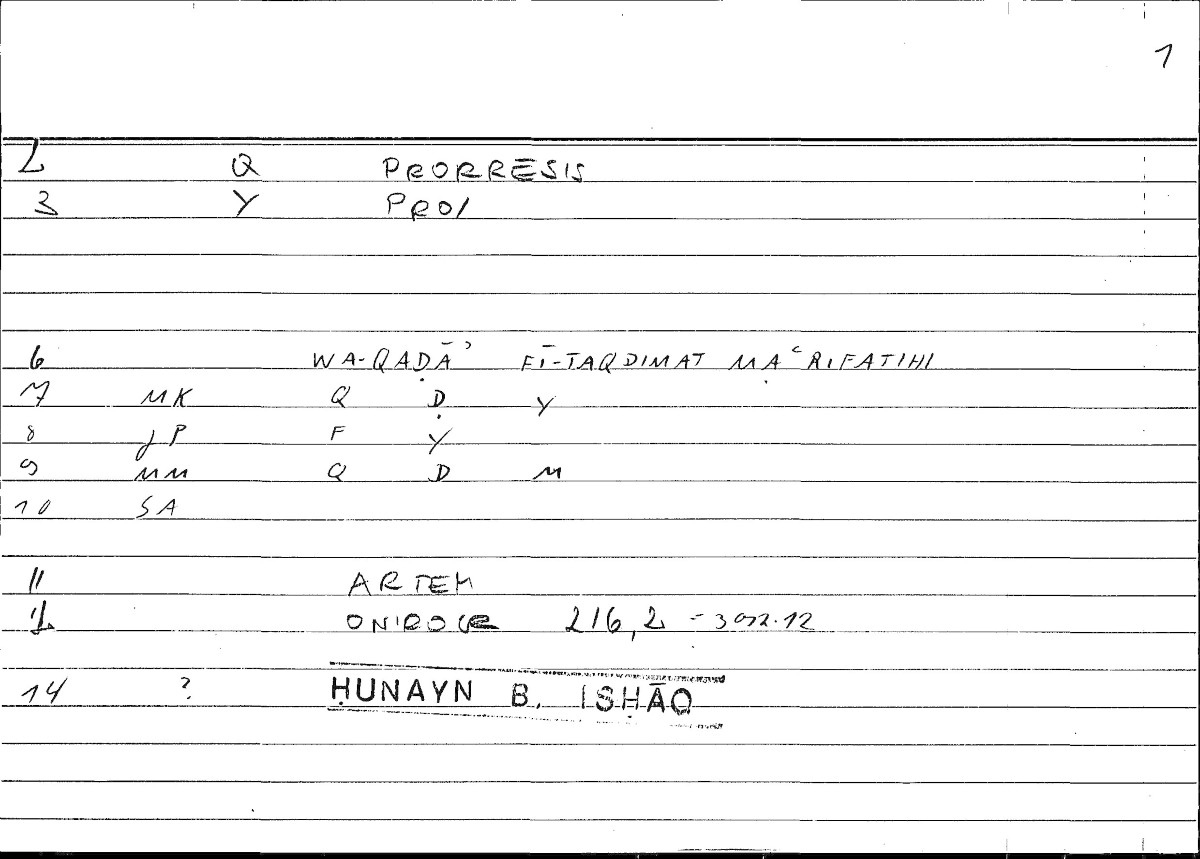 1
2 Q PRORRĒSIS
3 Y PRO/
6 WA-QAḌĀʾ FĪ-TAQDIMAT MAʿRIFATIHI
7 MK Q Ḍ Y
8 JP F Y
9 MM Q Ḍ M
10 SA
11 ARTEM
ONIROCR 216,2 = 392.12
14 ? ḤUNAYN B. ISḤĀQ